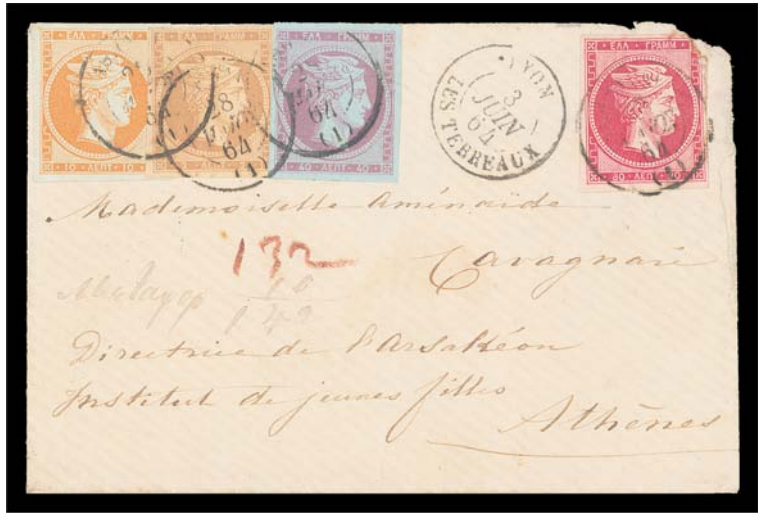 ΕΛΛ ΓΡΑΜΜ
10 ΛΕΠΤ 10
ΕΛΛ ΓΡΑΜΜ
28
64
(1)
ΕΛΛ ΓΡΑΜΜ
40 ΛΕΠΤ 40
64
(1)
LYON
3
JUIN
64
LES TERREAUX
ΕΛΛ ΓΡΑΜΜ
80 ΛΕΠΤ 80
64
(1)
Mademoiselle Aménaïde
132
Cavagnari
Directrice de l'Arsakéon
Institut de jeunes filles
Athènes